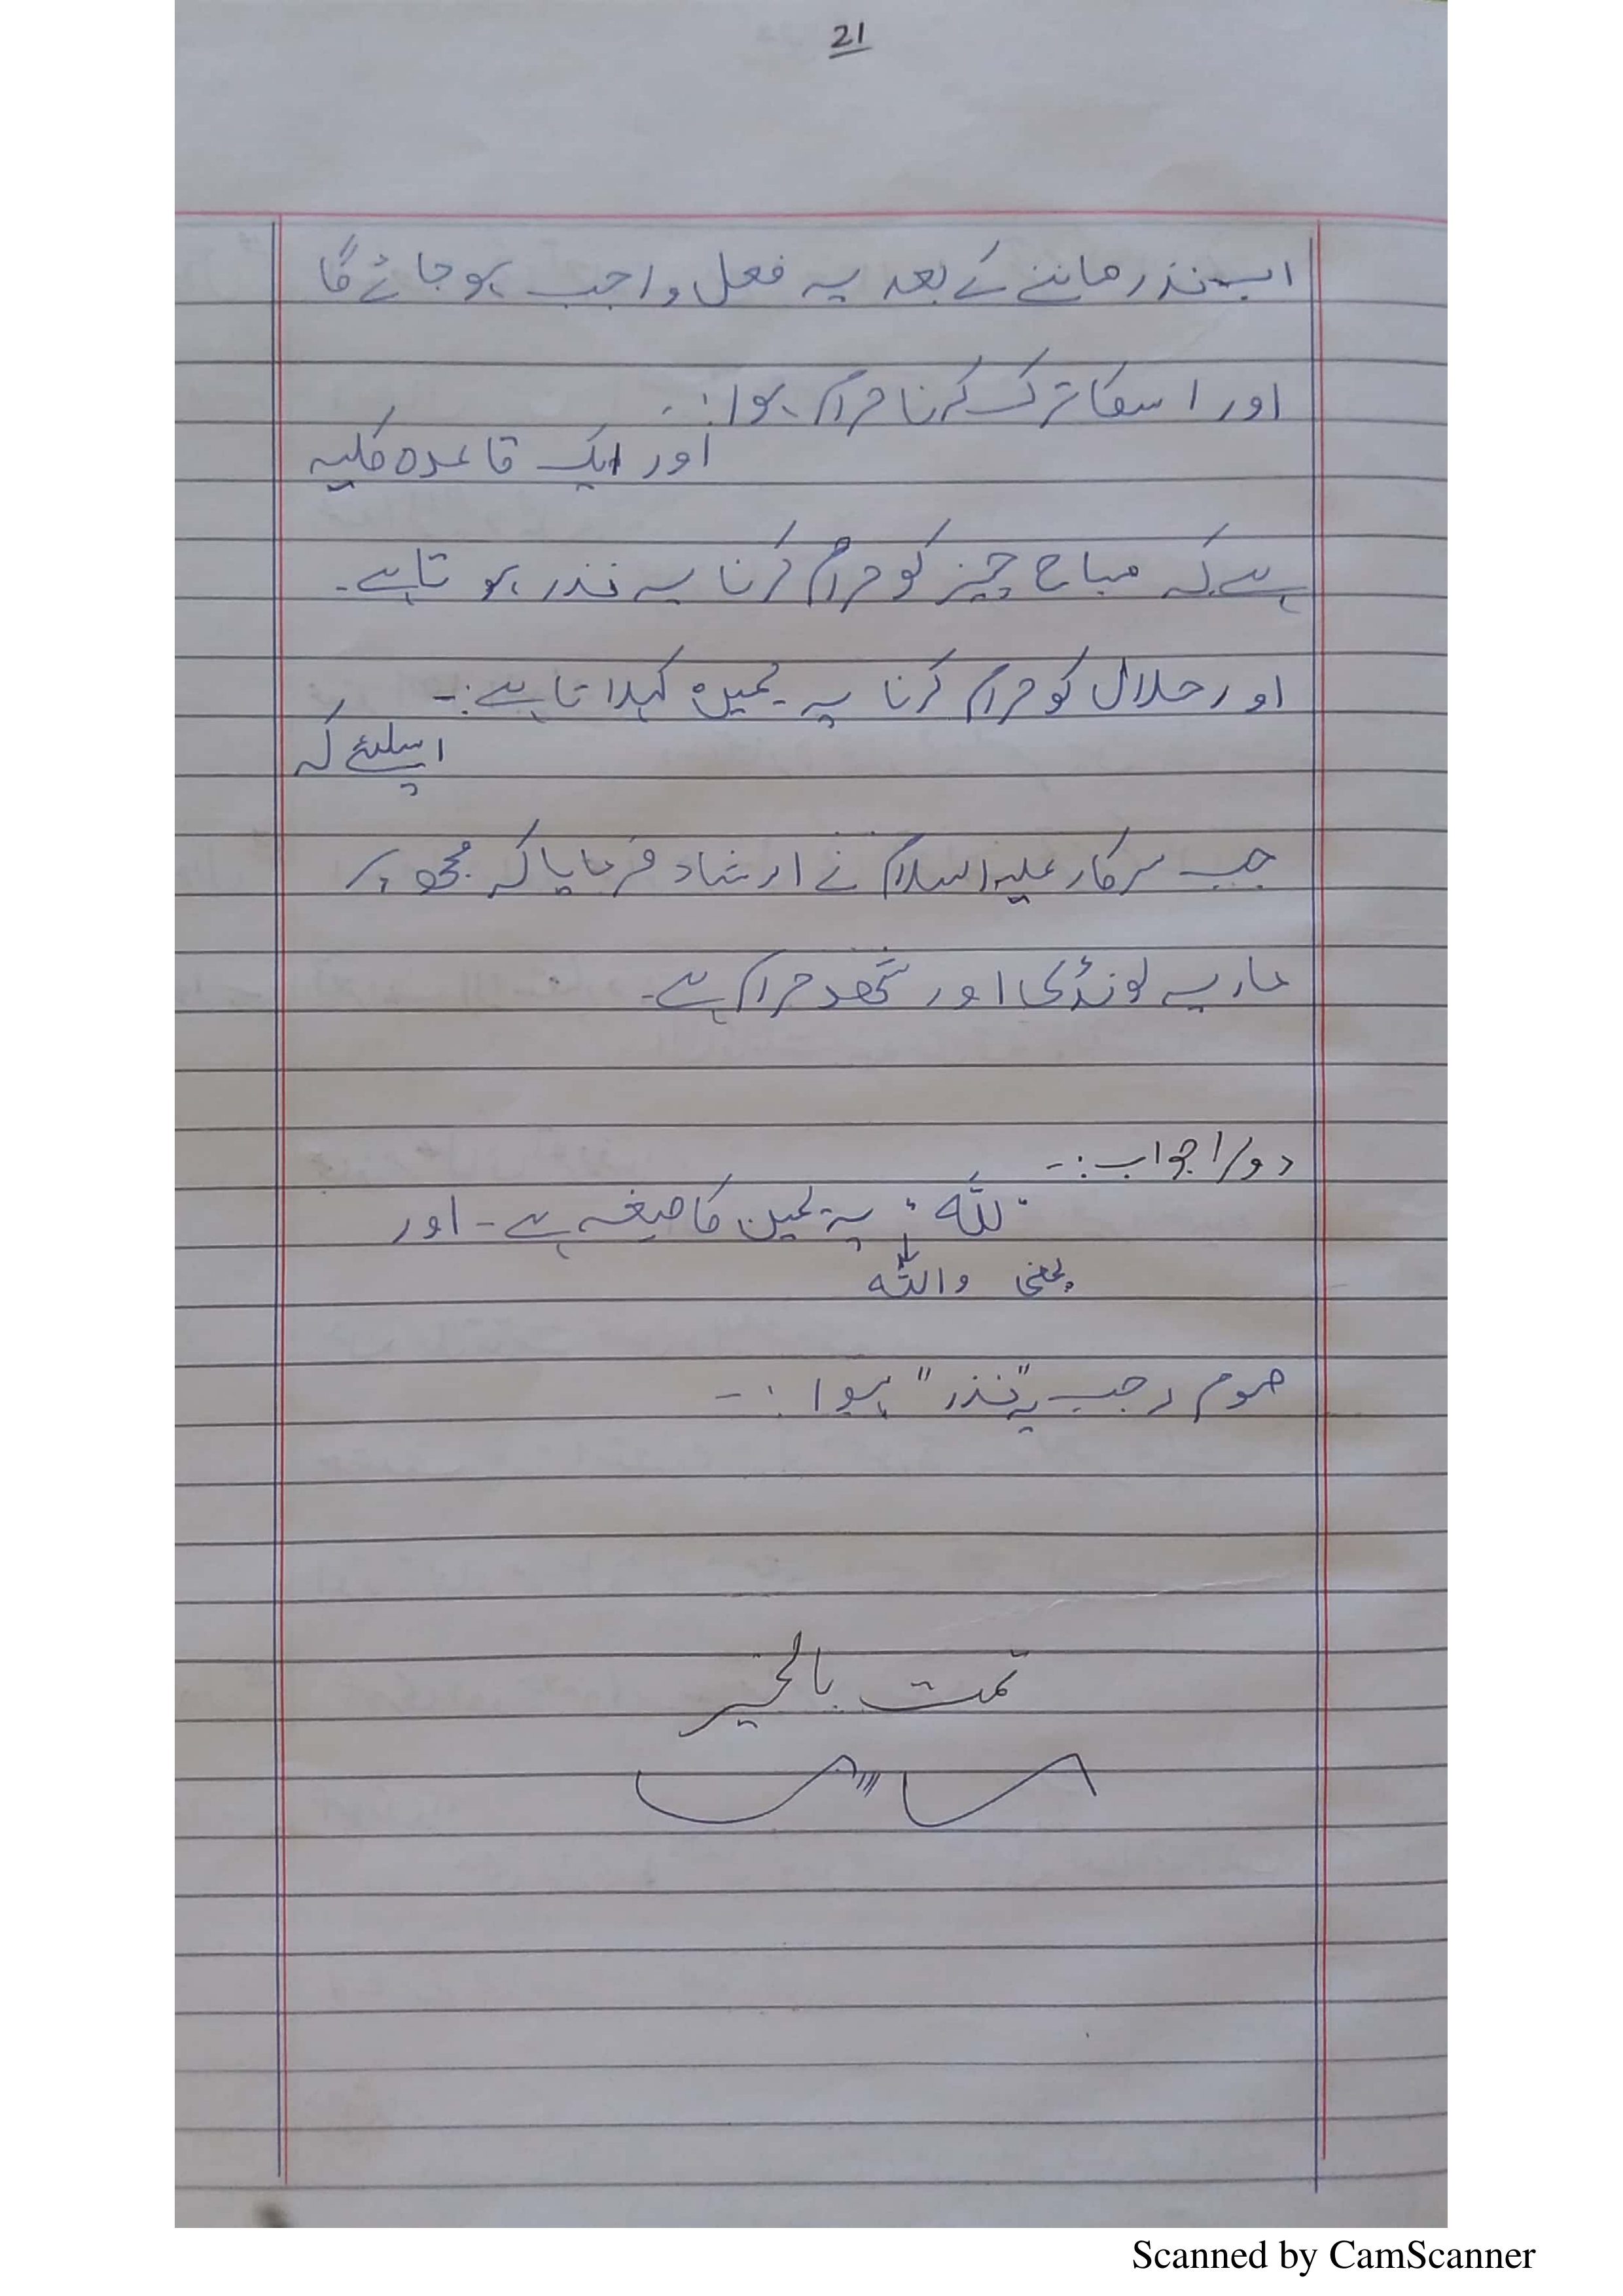 21
اب نذر ماننے کے بعد یہ فعل واجب ہو جائے گا
اور اسکا ترک کرنا حرام ہوا :۔
اور ایک قاعدہ کلیہ
ہے کہ مباح چیز کو حرام کرنا یہ نذر ہوتا ہے۔
اور حلال کو حرام کرنا یہ یمین کہلاتا ہے :۔
اسلئے کہ
جب سرکار علیہ السلام نے ارشاد فرمایا کہ مجھ پر
ماریہ لونڈی اور شھد حرام ہے۔
دوسرا جواب :۔
"للّٰہ" یہ یمین کا صیغہ ہے۔ اور
بمعنی واللّٰہ
صوم رجب یہ "نذر" ہوا :۔
تمت بالخیر
Scanned by CamScanner